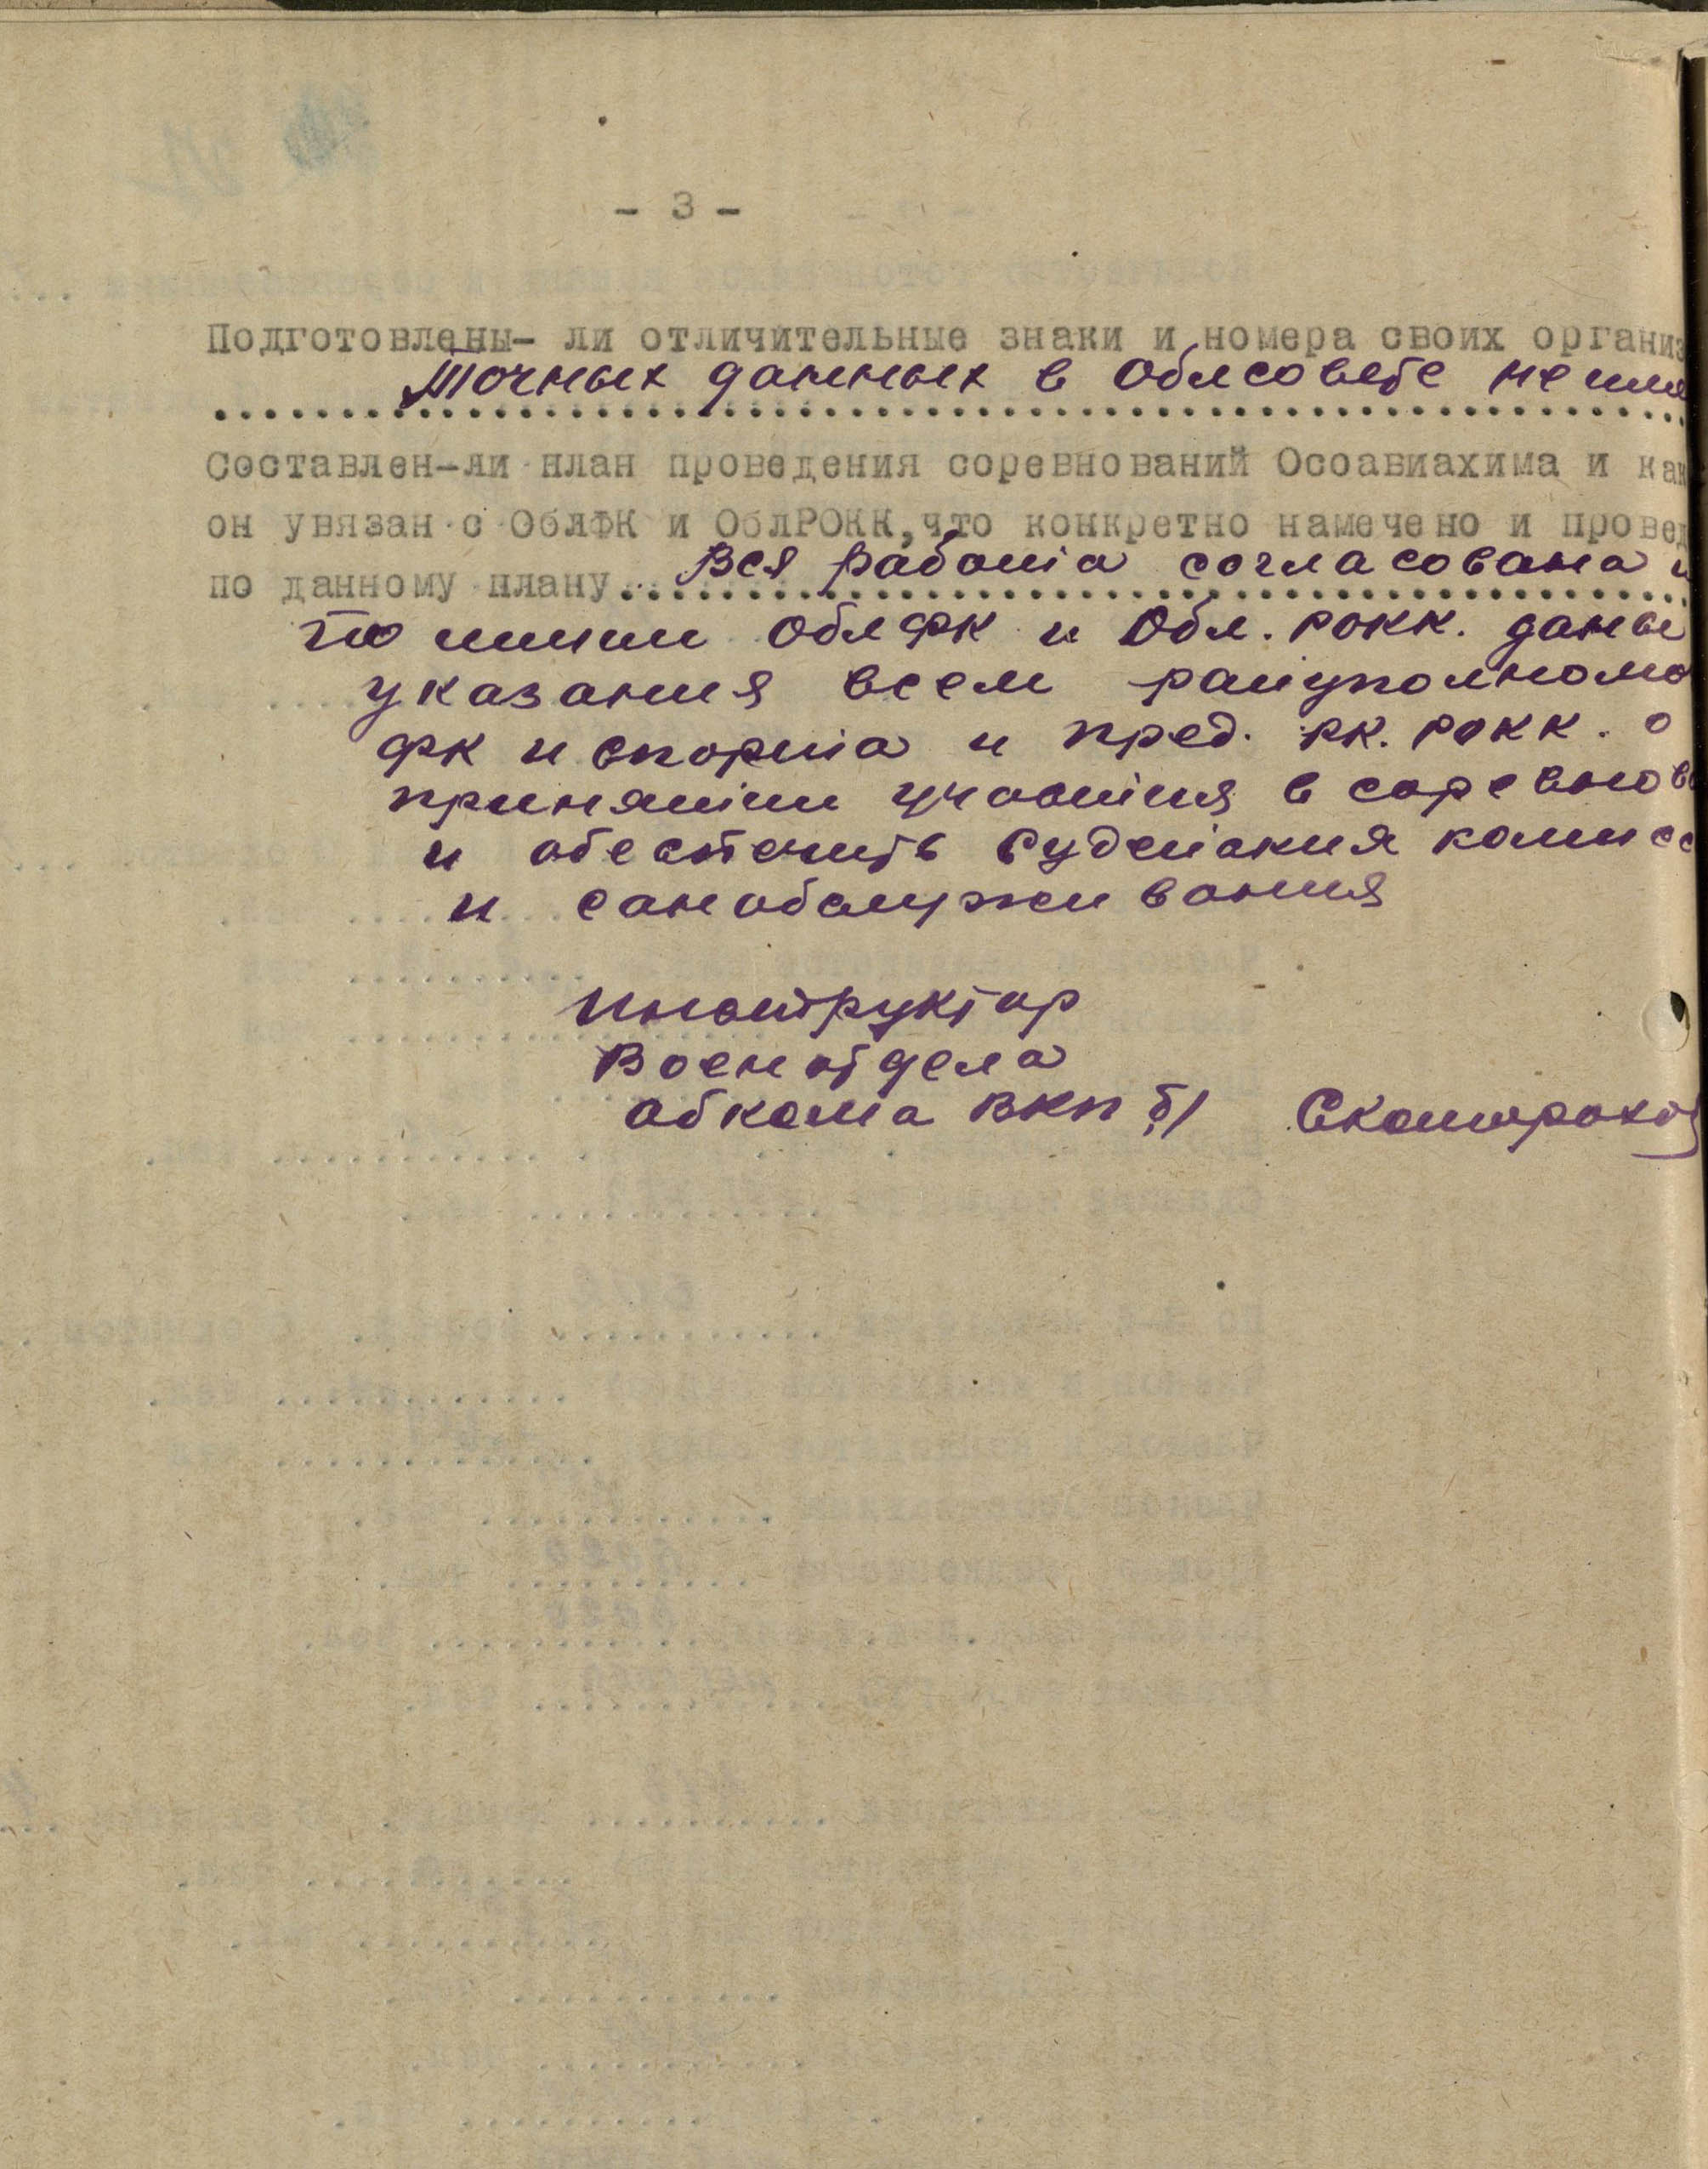 - 3 -
Подготовлены- ли отличительные знаки и номера своих организ
Точных данных в Облсовете не име
Составлен-ли план проведения соревнований Осоавиахима и как
он увязан с ОблФК и ОблРОКК, что конкретно намечено и провед
по данному плану... Вся работа согласована и
по линии ОблФК и Обл. РОКК. даны
указания всем райуполномо
ФК и спорта и пред. РК. РОКК. о
принятии участия в соревнова
и обеспечить судейския комисс
и санобслуживания
Инструктор
Военотдела
обкома ВКП б)